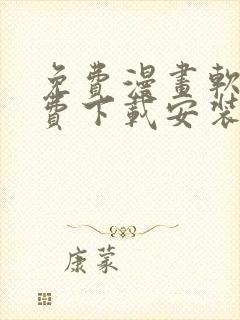 免費漫畫軟
費下載安裝
康蒙